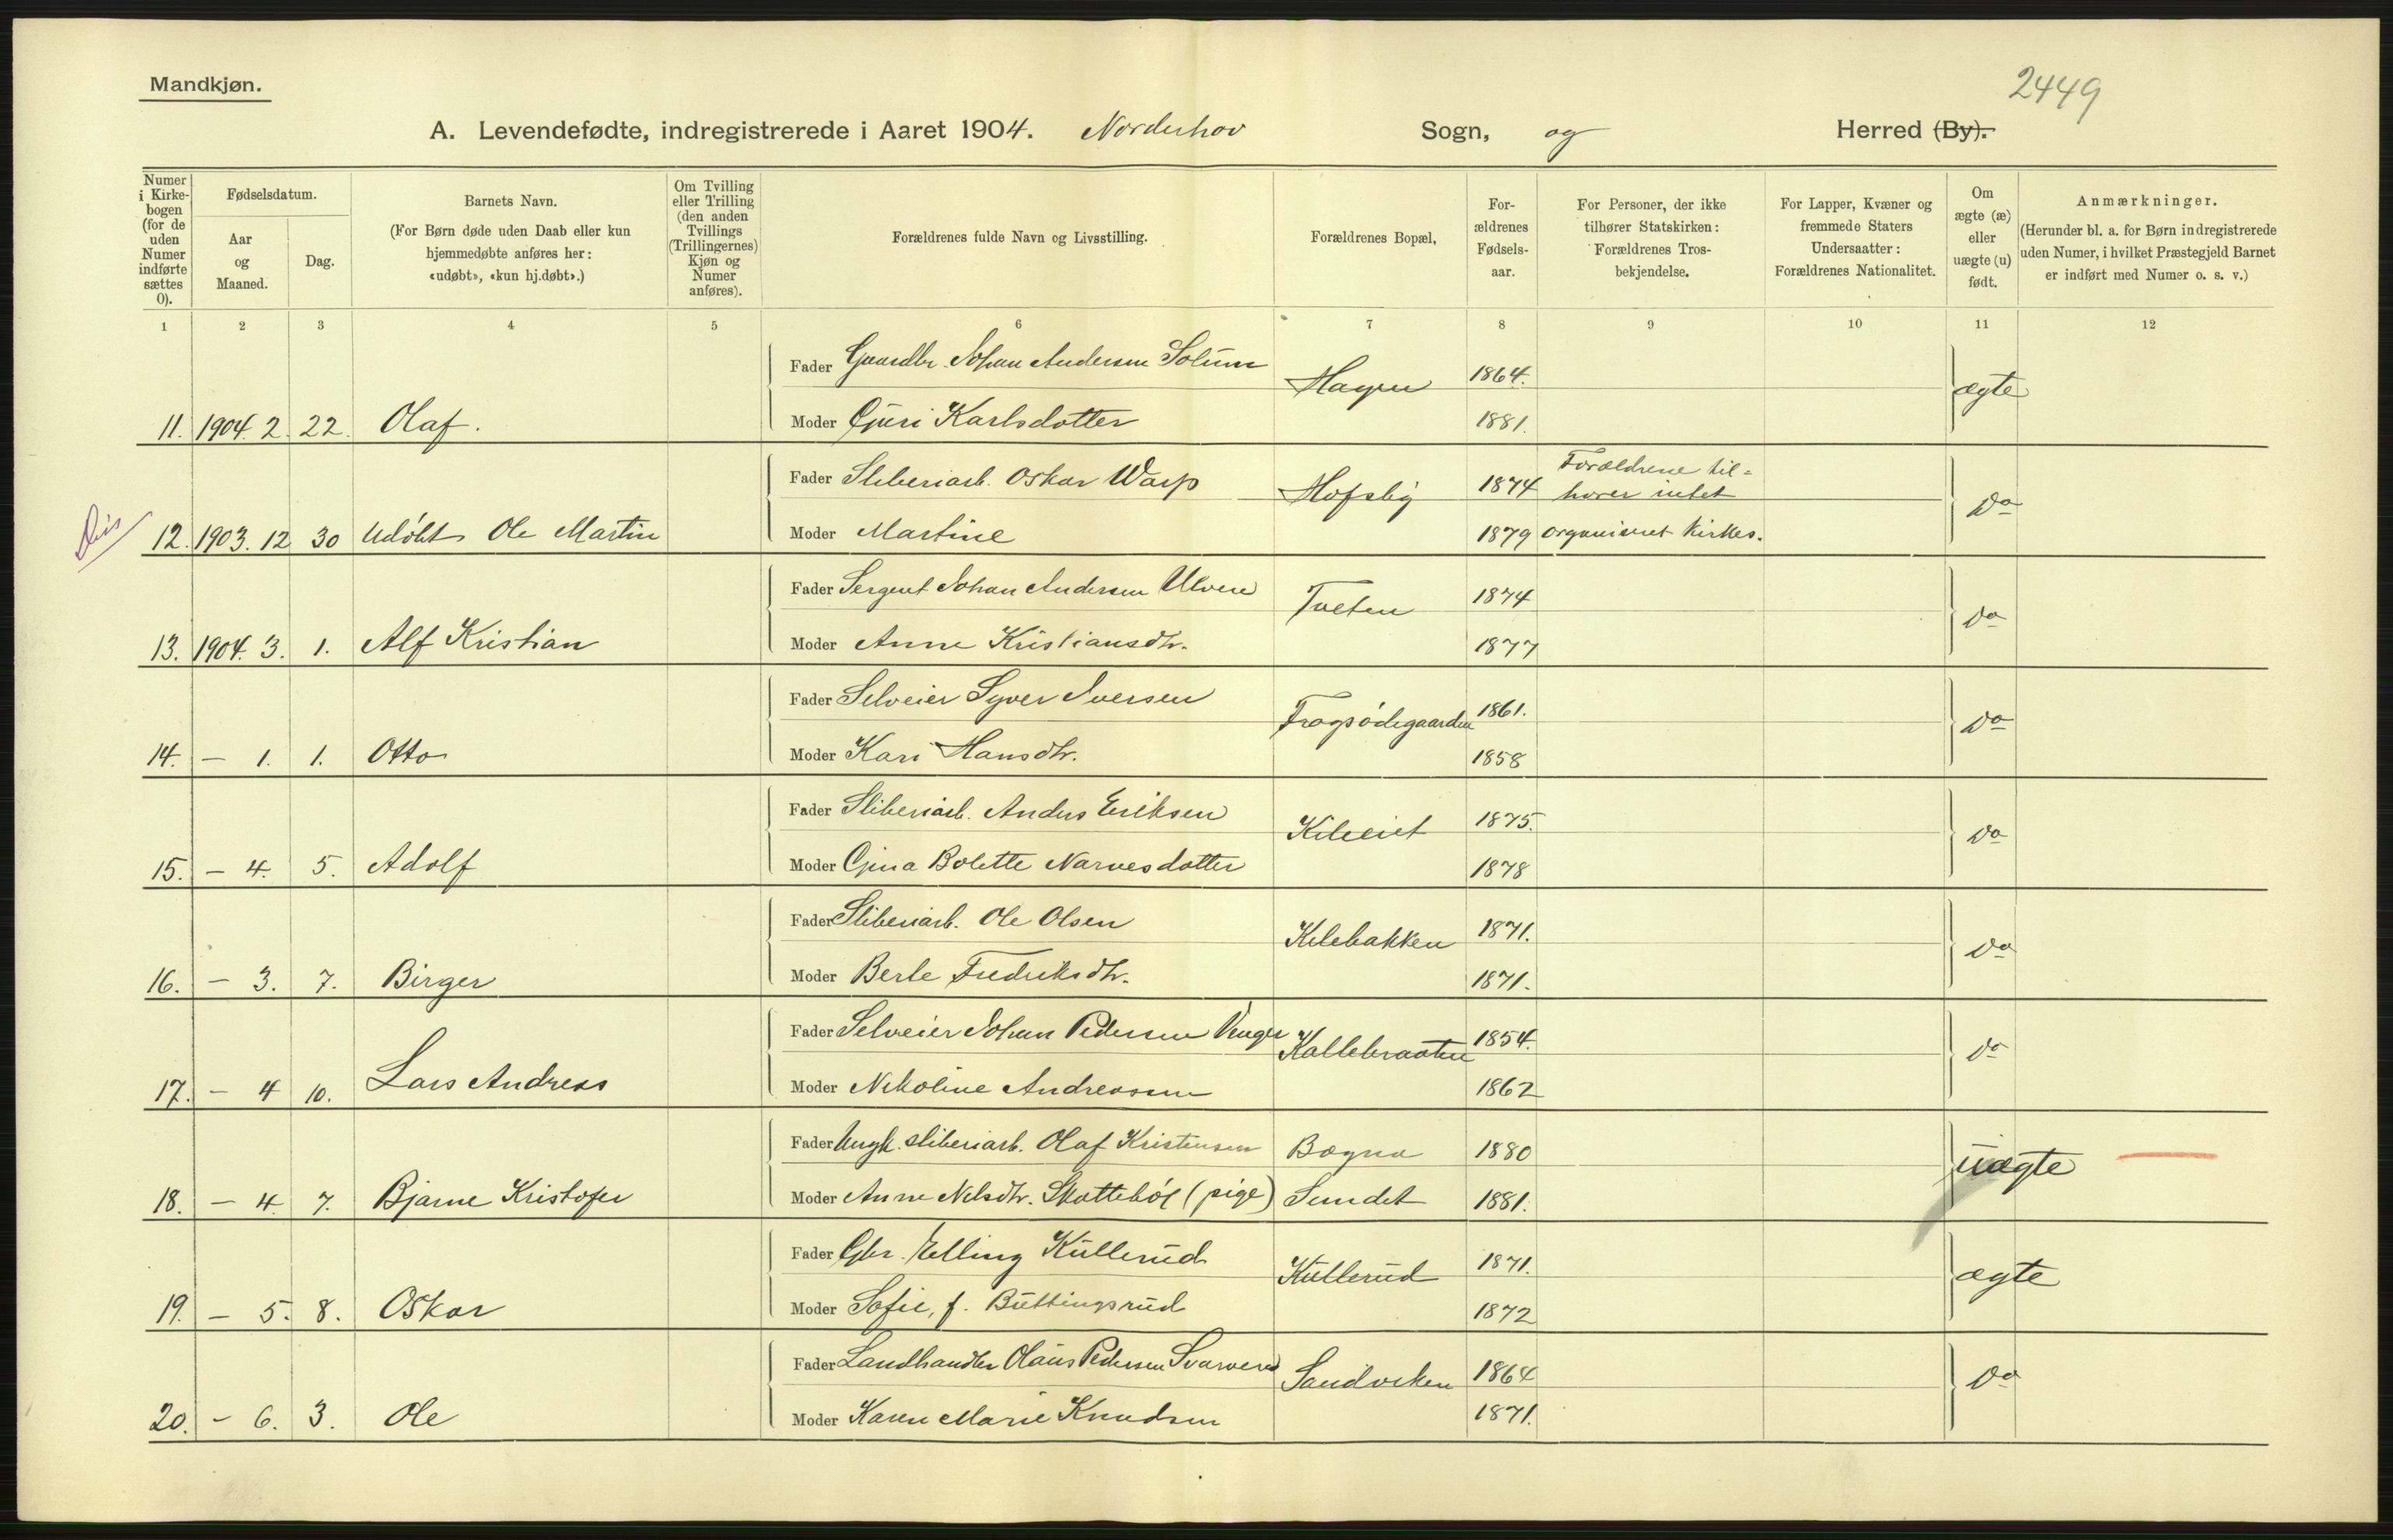 Mandkjøn.
2449
A. Levendefødte, indregistrerede i Aaret 1904. Norderhov Sogn, og Herred (By).
Numer i Kirkebogen (for de uden Numer indførte sættes 0).
Fødselsdatum.
Aar og Maaned.
Dag.
Barnets Navn.
(For Børn døde uden Daab eller kun hjemmedøbte anføres her: «udøbt», «kun hj.døbt».)
Om Tvilling eller Trilling (den anden Tvillings (Trillingernes) Kjøn og Numer anføres).
Forældrenes fulde Navn og Livsstilling.
Forældrenes Bopæl.
Forældrenes Fødselsaar.
For Personer, der ikke tilhører Statskirken: Forældrenes Trosbekjendelse.
For Lapper, Kvæner og fremmede Staters Undersaatter: Forældrenes Nationalitet.
Om ægte (æ) eller uægte (u) født.
Anmærkninger.
(Herunder bl. a. for Børn indregistrerede uden Numer, i hvilket Præstegjeld Barnet er indført med Numer o. s. v.)
1 2 3 4 5 6 7 8 9 10 11 12
Fader Gaardbr. Johan Andersen Solum Hagen 1864. ægte
11. 1904. 2. 22. Olaf. Moder Guri Karlsdotter 1881.
Fader Sliberiarb. Oskar Warp Hofsby 1874 Forældrene tilhører intet Do
12. 1903. 12 30 Udøbt Ole Martin Moder Martine 1879 organiseret Kirkes.
Fader Sergent Johan Andersen Ulven Tveten 1874 Do
13. 1904. 3. 1. Alf Kristian Moder Anne Kristiansdtr. 1877
Fader Selveier Syver Iversen Fragsödegaarden 1861. Do
14. — 1. 1. Otto Moder Kari Hansdtr. 1858
Fader Sliberiarb. Anders Eriksen Kileeiet 1875. Do
15. — 4. 5. Adolf Moder Gina Bolette Narvesdotter 1878
Fader Sliberiarb. Ole Olsen Kilebakken 1871. Do
16. — 3. 7. Birger Moder Berte Fredriksdtr. 1871.
Fader Selveier Johan Pedersen Venger Kallebraaten 1854. Do
17. — 4 10. Lars Andreas Moder Nikoline Andreassen 1862
Fader Ungk. sliberiarb. Olaf Kristensen Bægna 1880 uægte
18. — 4. 7. Bjarne Kristofer Moder Anne Nilsdtr. Skotteböl (pige) Sundet 1881.
Fader Gbr. Elling Kullerud Kullerud 1871. ægte
19. — 5. 8. Oskar Moder Sofie, f. Buttingsrud 1872
Fader Landhandler Olaus Pedersen Svarverud Sandviken 1864 Do
20. — 6. 3. Ole Moder Karen Marie Knudsen 1871.